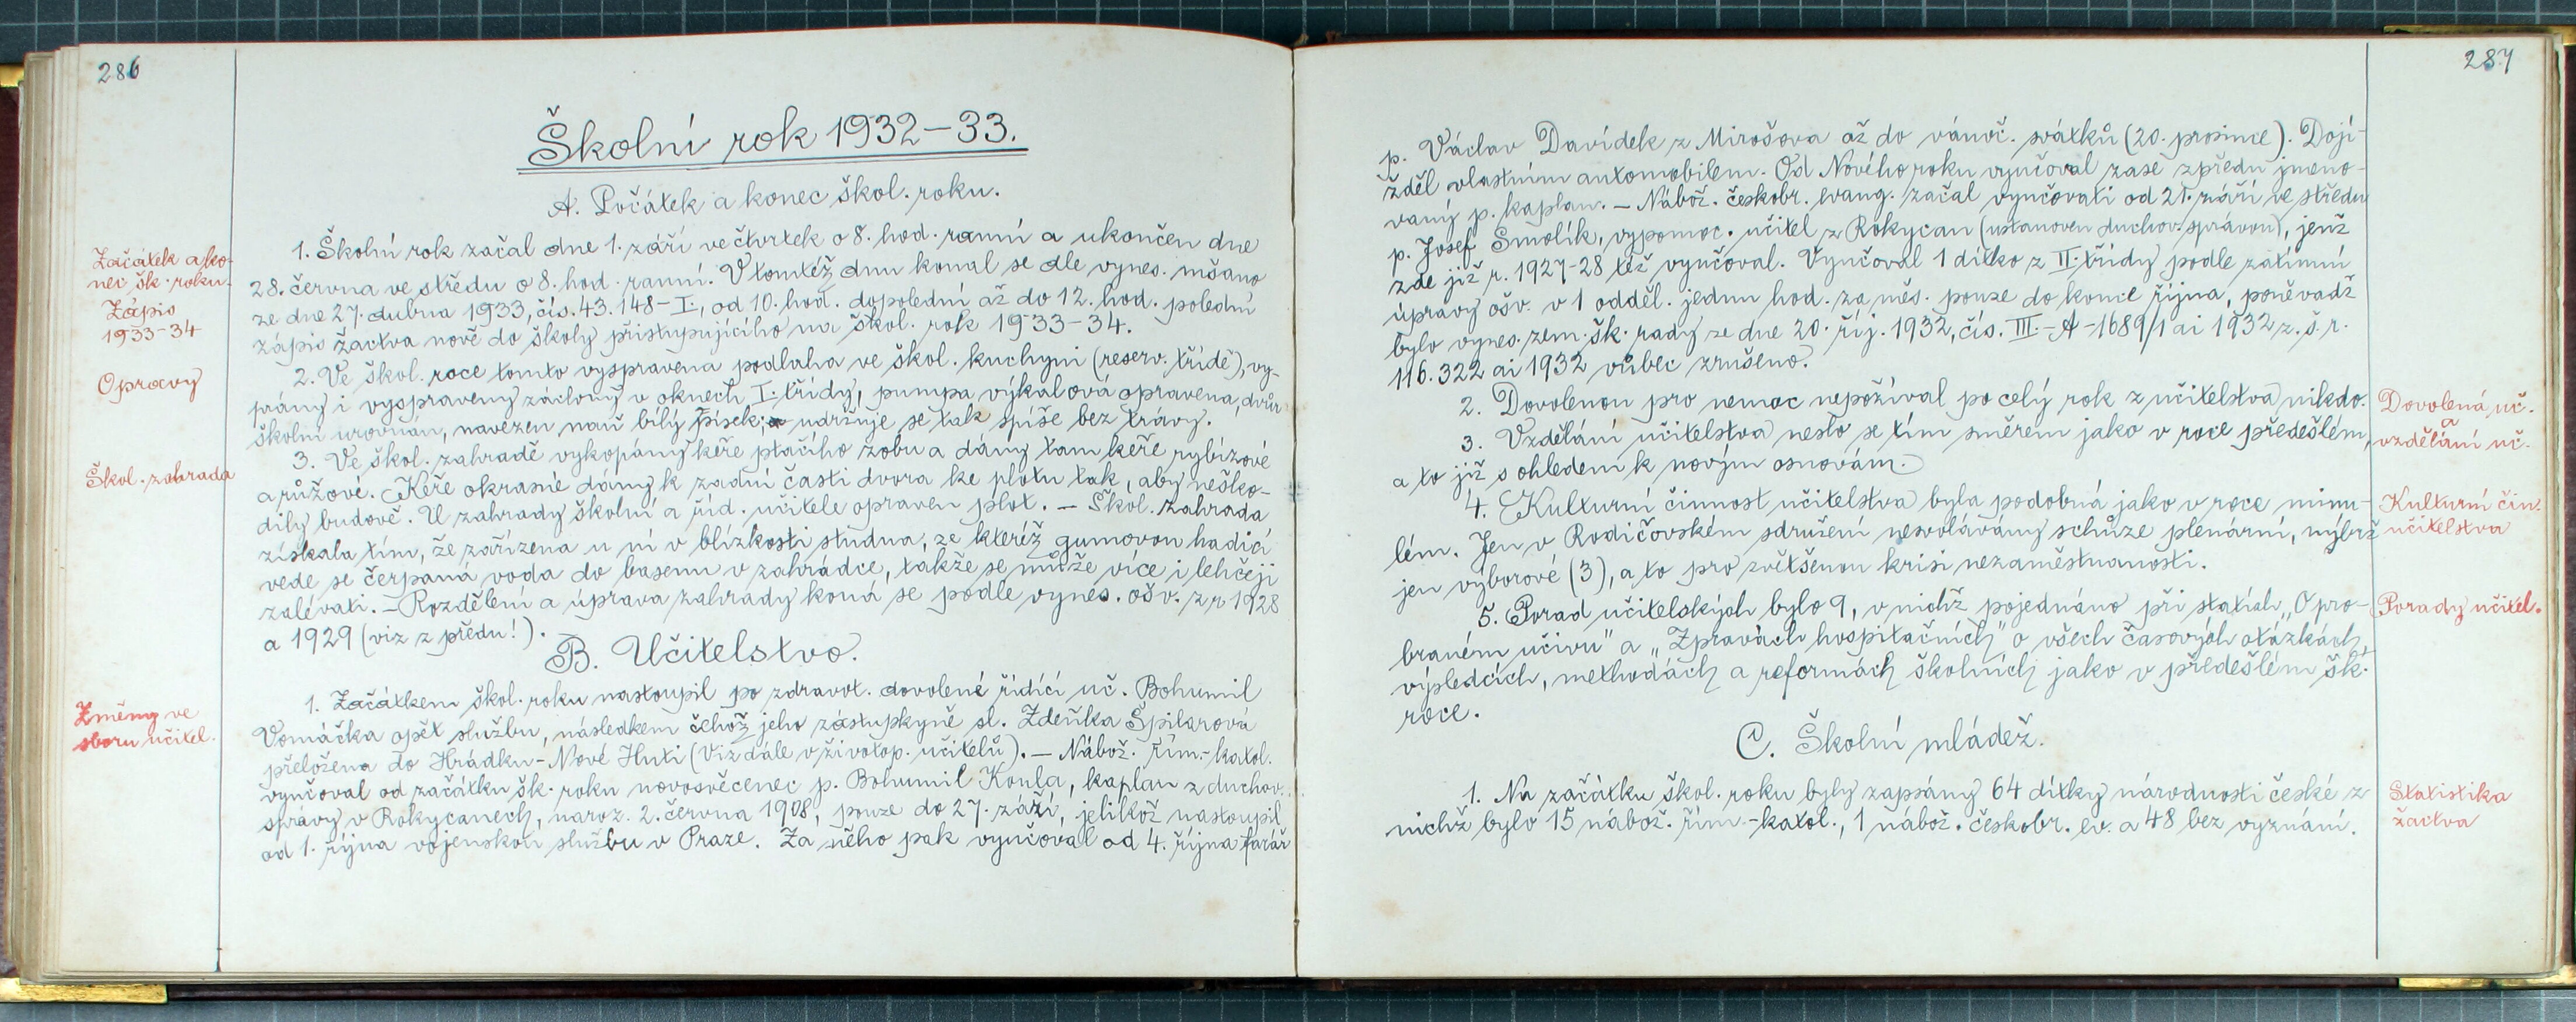 286
Školní rok 1932-33.
A. Počátek a konec škol. roku.
Začátek a ko-
nec šk. roku.
Zápis
1933-34
1. Školní rok začal dne 1. září ve čtvrtek o 8. hod. ranní a ukončen dne
28. června ve středu o 8. hod. ranní. V tomtéž dnu konal se dle vynes. mšano
ze dne 27. dubna 1933, čís. 43.148-I., od 10. hod. dopolední až do 12. hod. polední
zápis žactva nově do školy přistupujícího na škol. rok 1933-34.
Opravy
2. Ve škol. roce tomto vyspravena podlaha ve škol. kuchyni (reserv. třídě), vy-
prány i vyspraveny záclony v oknech I. třídy, pumpa výkalová opravena, dvůr
školní urovnán, navezen naň bílý písek; udržuje se tak spíše bez trávy.
Škol. zahrada
3. Ve škol. zahradě vykopány keře ptačího zobu a dány tam keře rybízové
a růžové. Keře okrasné dány k zadní části dvora ke plotu tak, aby neško-
dily budově. U zahrady školní a říd. učitele opraven plot. – Škol. zahrada
získala tím, že zařízena u ní v blízkosti studna, ze kteréž gumovou hadicí
vede se čerpaná voda do basenu v zahrádce, takže se může více i lehčeji
zalévati. – Rozdělení a úprava zahrady koná se podle vynes. ošv. z r. 1928
a 1929 (viz z předu!).
B. Učitelstvo.
Změny ve
sboru učitel.
1. Začátkem škol. roku nastoupil po zdravot. dovolené řídící uč. Bohumil
Vomáčka opět službu, následkem čehož jeho zástupkyně sl. Zdeňka Špilarová
přeložena do Hrádku-Nové Huti (Viz dále v životop. učitelů). – Nábož. řím.-katol.
vyučoval od začátku šk. roku novosvěcenec p. Bohumil Koula, kaplan z duchov.
správy v Rokycanech, naroz. 2. června 1908, pouze do 27. září, jelikož nastoupil
od 1. října vojenskou službu v Praze. Za něho pak vyučoval od 4. října farář
287
p. Václav Davídek z Mirošova až do vánoč. svátků (20. prosince). Dojí-
žděl vlastním automobilem. Od Nového roku vyučoval zase zpředu jmeno-
vaný p. kaplan. – Nábož. českobr. evang. začal vyučovati od 21. září ve středu
p. Josef Smolík, vypomoc. učitel z Rokycan (ustanoven duchov. správou), jenž
zde již r. 1927-28 též vyučoval. Vyučoval 1 dítko z II. třídy podle zatímní
úpravy ošv. v 1 odděl. jednu hod. za měs. pouze do konce října, poněvadž
bylo vynes. zem. šk. rady ze dne 20. říj. 1932, čís. III.-A-1689/1 ai 1932 z. š. r.
116.322 ai 1932 vůbec zrušeno.
2. Dovolenou pro nemoc nepožíval po celý rok z učitelstva nikdo.
Dovolená uč.
a
vzdělání uč.
3. Vzdělání učitelstva neslo se tím směrem jako v roce předešlém,
a to již s ohledem k novým osnovám.
4. Kulturní činnost učitelstva byla podobná jako v roce minu-
Kulturní čin.
učitelstva
lém. Jen v Rodičovském sdružení nesvolávány schůze plenární, nýbrž
jen výborové (3), a to pro zvětšenou krisi nezaměstnanosti.
5. Porad učitelských bylo 9, v nichž pojednáno při statích „O pro-
Porady učitel.
braném učivu" a „Zprávách hospitačních" o všech časových otázkách,
výsledcích, methodách a reformách školních jako v předešlém šk.
roce.
C. Školní mládež.
1. Na začátku škol. roku byly zapsány 64 dítky národnosti české z
Statistika
žactva
nichž bylo 15 nábož. řím.-katol., 1 nábož. českobr. ev. a 48 bez vyznání.